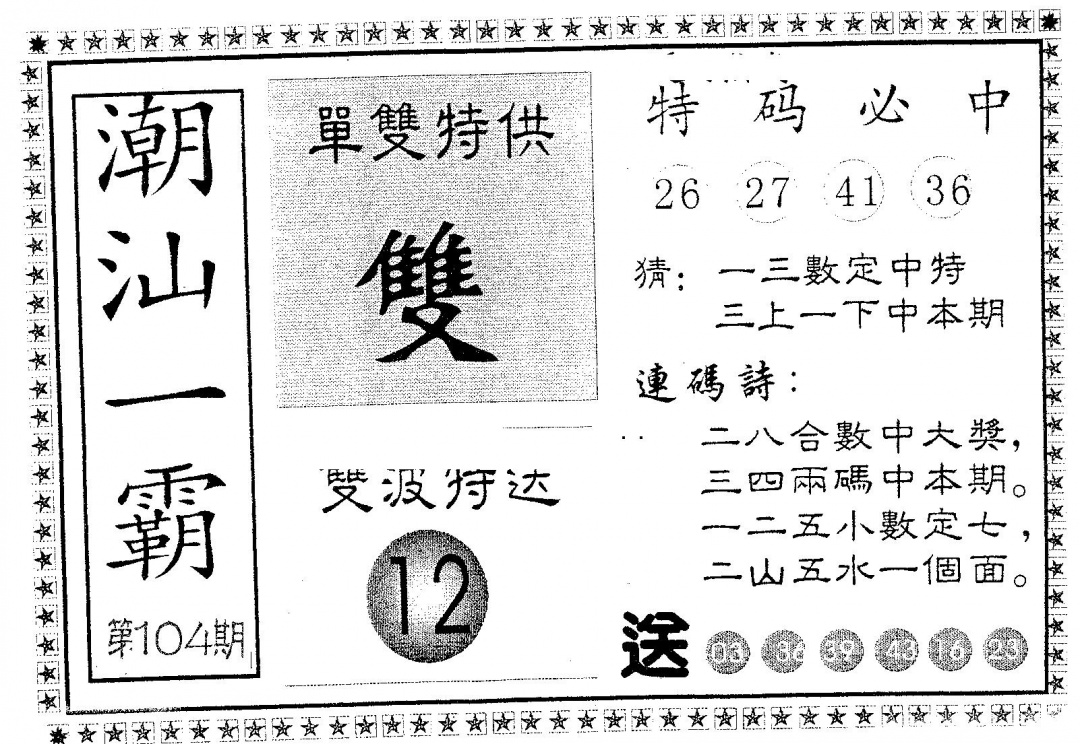 潮汕一霸
第104期
單雙特供
雙
雙波特达
12
特码必中
26 27 41 36
猜：一三數定中特
三上一下中本期
連碼詩：
二八合數中大獎，
三四兩碼中本期。
一二五小數定七，
二山五水一個面。
送 03 36 39 43 16 23